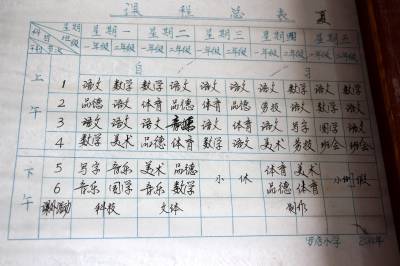 课程总表 夏
星期 星期一 星期二 星期三 星期四 星期五
科目 班级 一年级 二年级 一年级 二年级 一年级 二年级 一年级 二年级 一年级 二年级
节次
上午 自 习
1 语文 数学 数学 语文 语文 语文 语文 数学 语文 数学
2 品德 语文 体育 品德 体育 品德 劳技 语文 数学 语文
3 语文 语文 语文 音乐 语文 体育 语文 写字 国学 语文
4 数学 美术 品德 体育 数学 语文 美术 劳技 班会 班会
下午
5 写字 音乐 美术 品德 小休 体育 美术 小休假
6 音乐 国学 音乐 数学 品德 体育
课外活动 科技 文体 制作